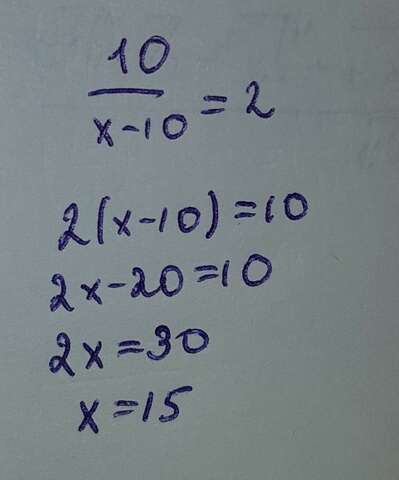 10
x-10 = 2
2(x-10)=10
2x-20=10
2x=30
x=15